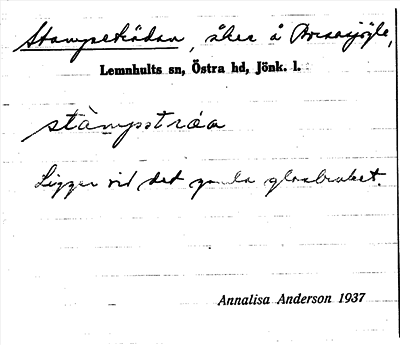 Stampeträdan, åker å
Lemnhults sn, Östra hd, Jönk. l.
stàmpstráa
Ligger vid det gamla glasbruket.
Annalisa Anderson 1937